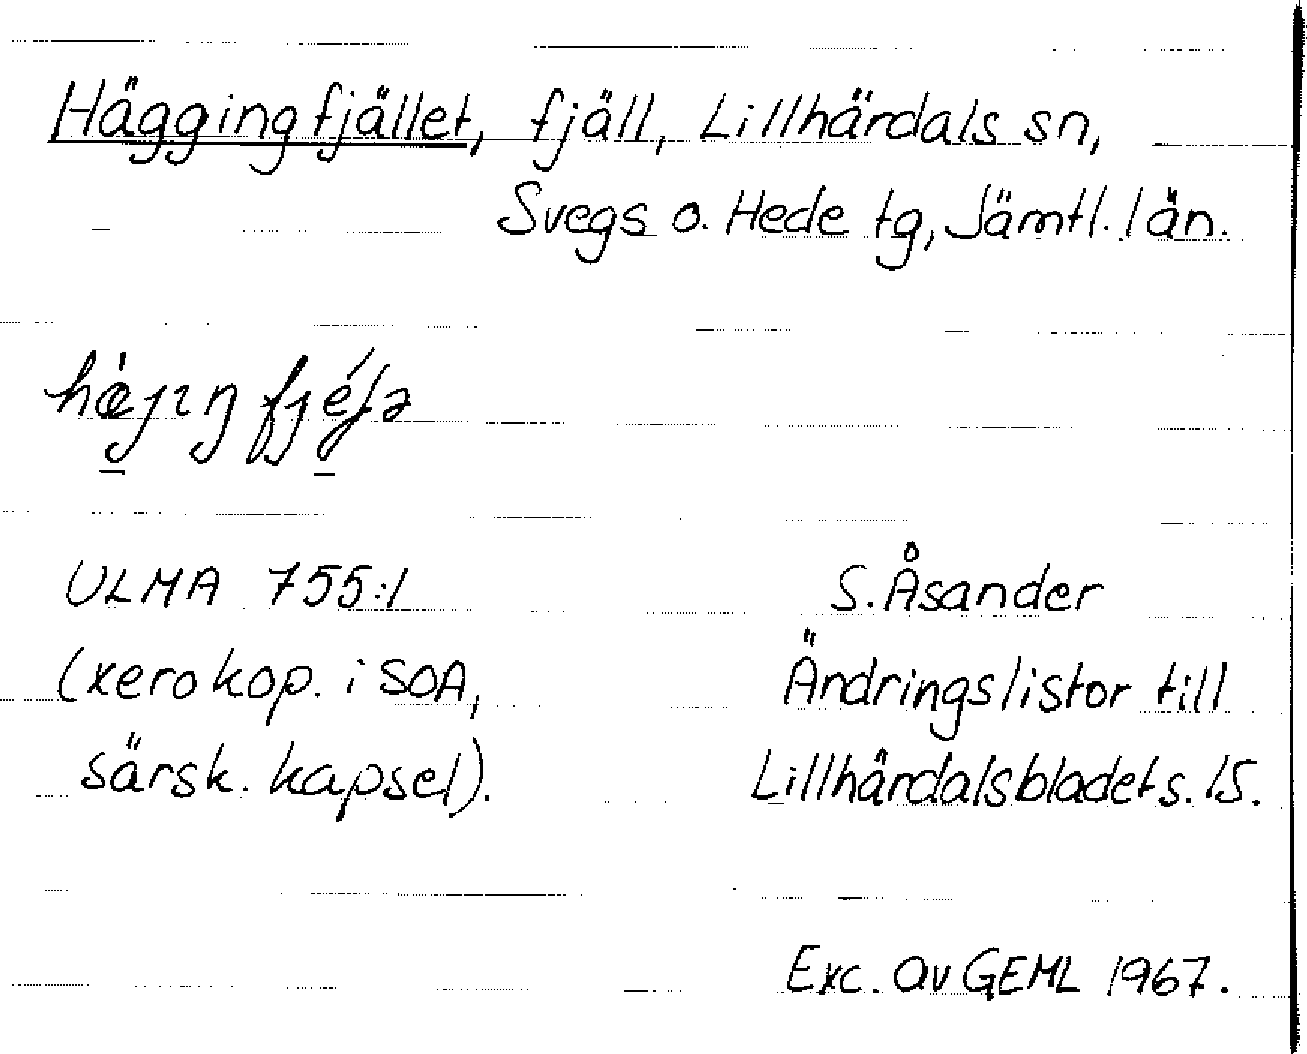 Häggingfjället, fjäll, Lillhärdals sn,
Svegs o. Hede tg, Jämtl. län.
ULMA 755:1
(xerokop. i SOA,
särsk. kapsel).
S. Åsander
Ändringslistor till
Lillhärdalsbladet s. 15.
Exc. av GEML 1967.